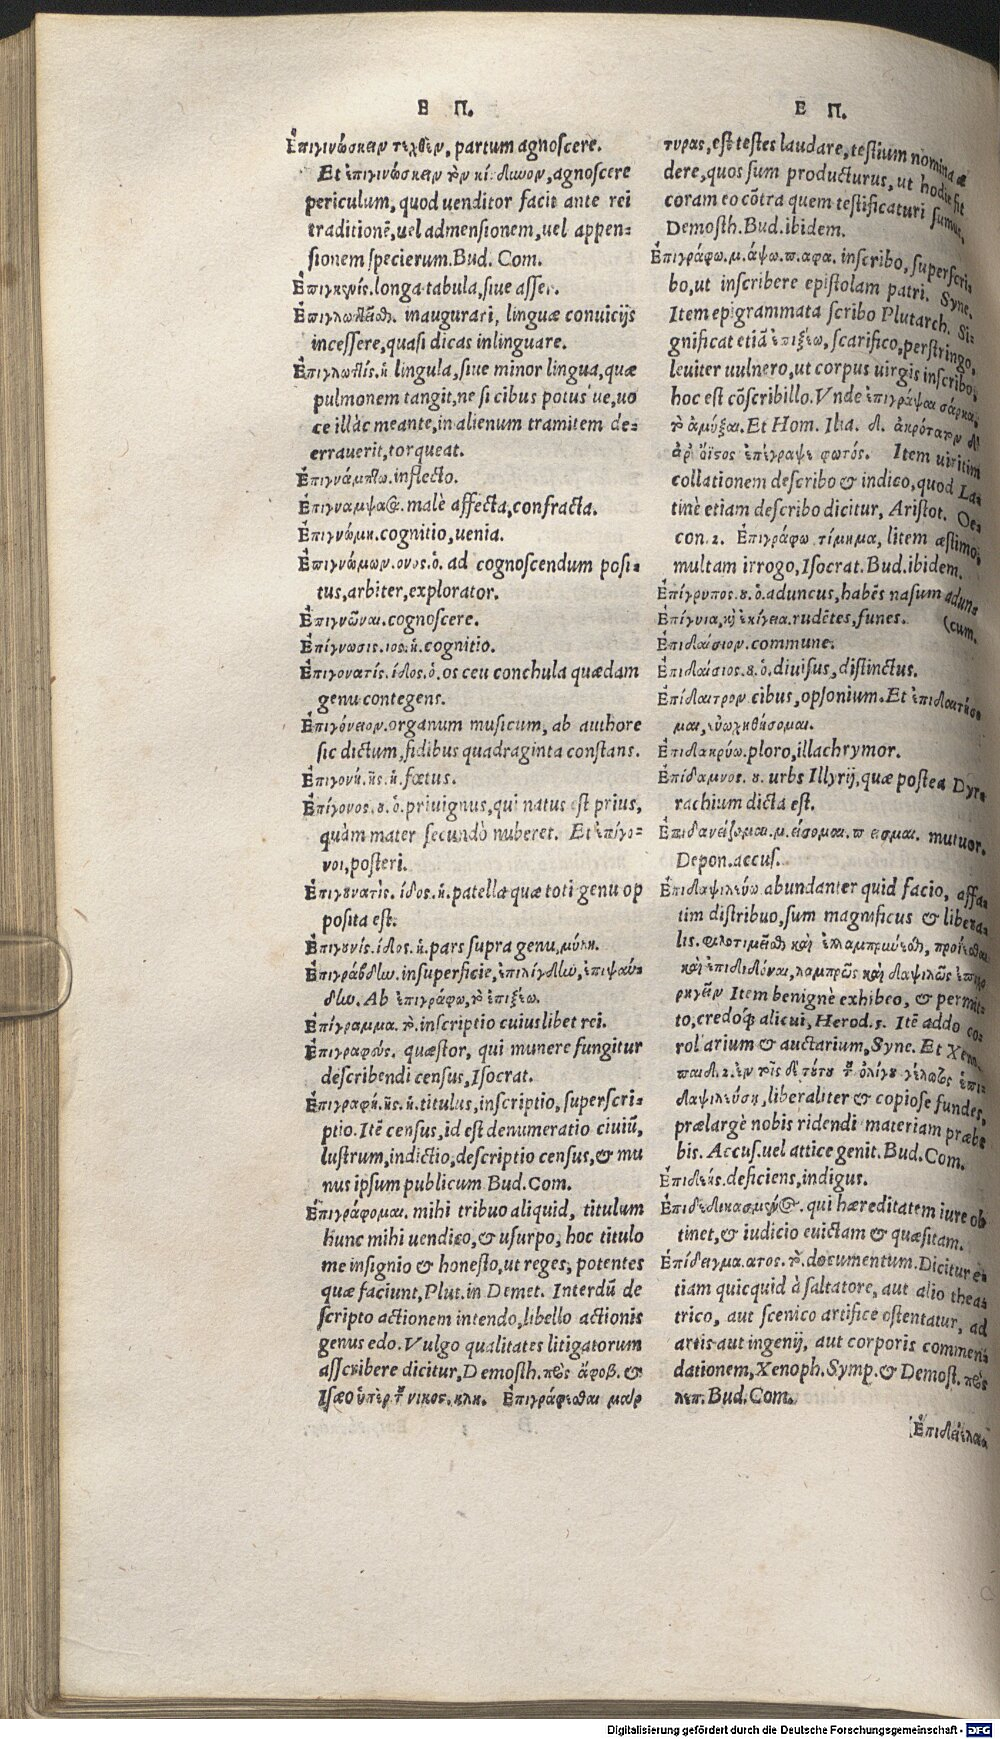 Ε Π.
Ἐπιγινώσκειν τεχθὲν, partum agnoscere.
Et ἐπιγινώσκειν τὸν κίνδυνον, agnoscere
periculum, quod uenditor facit ante rei
traditionē, uel admensionem, uel appen-
sionem specierum. Bud. Com.
longa tabula, siue asser.
inaugurari, linguæ conuicijs
incessere, quasi dicas inlinguare.
Ἐπιγλωττὶς. ἡ lingula, siue minor lingua, quæ
pulmonem tangit, ne si cibus potus'ue, uo
ce illàc meante, in alienum tramitem de-
errauerit, torqueat.
Ἐπιγνάμπτω. inflecto.
malè affecta, confracta.
Ἐπιγνώμη. cognitio, uenia.
Ἐπιγνώμων. ονος. ὁ. ad cognoscendum posi-
tus, arbiter, explorator.
Ἐπιγνῶναι. cognoscere.
Ἐπίγνωσις. ιος. ἡ. cognitio.
Ἐπιγονατίς. ίδος. ὁ. os ceu conchula quædam
genu contegens.
Ἐπιγόνειον. organum musicum, ab authore
sic dictum, fidibus quadraginta constans.
Ἐπιγονή. ῆς. ἡ. fœtus.
Ἐπίγονος. ȣ. ὁ. priuignus, qui natus est prius,
quàm mater secundò nuberet. Et ἐπίγο-
νοι, posteri.
Ἐπιγουνατὶς. ίδος. ἡ. patella quæ toti genu op
posita est.
Ἐπιγουνίς. ίδος. ἡ. pars supra genu, μύλη.
Ἐπιγράβδην. in superficie, ἐπιλίγδην, ἐπιψαύ-
δην. Ab ἐπιγράφω, τὸ ἐπιξέω.
Ἐπίγραμμα. τὸ. inscriptio cuiuslibet rei.
Ἐπιγραφεύς. quæstor, qui munere fungitur
describendi census, Isocrat.
Ἐπιγραφή. ῆς. ἡ. titulus, inscriptio, superscri-
ptio. Itē census, id est denumeratio ciuiū,
lustrum, indictio, descriptio census, & mu
nus ipsum publicum. Bud. Com.
Ἐπιγράφομαι. mihi tribuo aliquid, titulum
hunc mihi uendico, & usurpo, hoc titulo
me insignio & honesto, ut reges, potentes
quæ faciunt, Plut. in Demet. Interdū de
scripto actionem intendo, libello actionis
genus edo. Vulgo qualitates litigatorum
asscribere dicitur, Demosth. πρὸς ἄφοβ. &
Isæo ὑπὲρ τȣ͂ νικος. κλη. Ἐπιγράφεσθαι μαρ
Ε Π.
τυρας, est testes laudare, testium nomina æ
dere, quos sum producturus, ut hodie fit
coram eo cōtra quem testificaturi sumus,
Demosth. Bud. ibidem.
Ἐπιγράφω. μ. άψω. π. αφα. inscribo, superscri-
bo, ut inscribere epistolam patri. Syne.
Item epigrammata scribo Plutarch. Si-
gnificat etiā ἐπιξέω, scarifico, perstringo,
leuiter uulnero, ut corpus uirgis inscribo,
hoc est cōscribillo. Vnde ἐπιγράψαι σάρκα,
τὸ ἀμύξαι. Et Hom. Ilia. δ. ἀκρότατον δ'
ἄρ' ὀϊστὸς ἐπέγραψε φωτός. Item uiritim
collationem describo & indico, quod La-
tinè etiam describo dicitur, Aristot. Oe-
con. 2. Ἐπιγράφω τίμημα, litem æstimo,
multam irrogo, Isocrat. Bud. ibidem.
Ἐπίγρυπος. ȣ. ὁ. aduncus, habēs nasum adun-
(cum.
Ἐπίγυια, ἢ ἐπίγεια. rudētes, funes.
Ἐπιδαίσιον. commune.
Ἐπιδαίσιος. ȣ. ὁ. diuisus, distinctus.
Ἐπίδαιτρον cibus, opsonium. Et ἐπιδαιτήσο
μαι, εὐωχηθήσομαι.
Ἐπιδακρύω. ploro, illachrymor.
Ἐπίδαμνος. ȣ. urbs Illyrij, quæ postea Dyr-
rachium dicta est.
Ἐπιδανείζομαι. μ. είσομαι. π εισμαι. mutuor.
Depon. accus.
Ἐπιδαψιλεύω abundanter quid facio, affa-
tim distribuo, sum magnificus & libera-
lis. φιλοτιμεῖσθαι καὶ ἐλλαμπρύνεσθαι, προΐεσθαι
καὶ ἐπιδιδόναι, λαμπρῶς καὶ δαψιλῶς ἐπιχο
ρηγεῖν Item benignè exhibeo, & permit-
to, credoq́ alicui, Herod. 5. Itē addo co-
rolarium & auctarium, Syne. Et Xeno.
παιδ. 2. ἐν τοῖς δὲ τούτου τȣ͂ ὀλίγου γέλωτος ἐπι-
δαψιλεύσῃ, liberaliter & copiose fundes,
prælargè nobis ridendi materiam præbe
bis. Accus. uel attice genit. Bud. Com.
Ἐπιδεής. deficiens, indigus.
qui hæreditatem iure ob
tinet, & iudicio euictam & quæsitam.
Ἐπίδειγμα. ατος. τὸ. documentum. Dicitur e-
tiam quicquid à saltatore, aut alio thea-
trico, aut scenico artifice ostentatur, ad
artis aut ingenij, aut corporis commen-
dationem, Xenoph. Symp. & Demost. πρὸς
λεπ. Bud. Com.